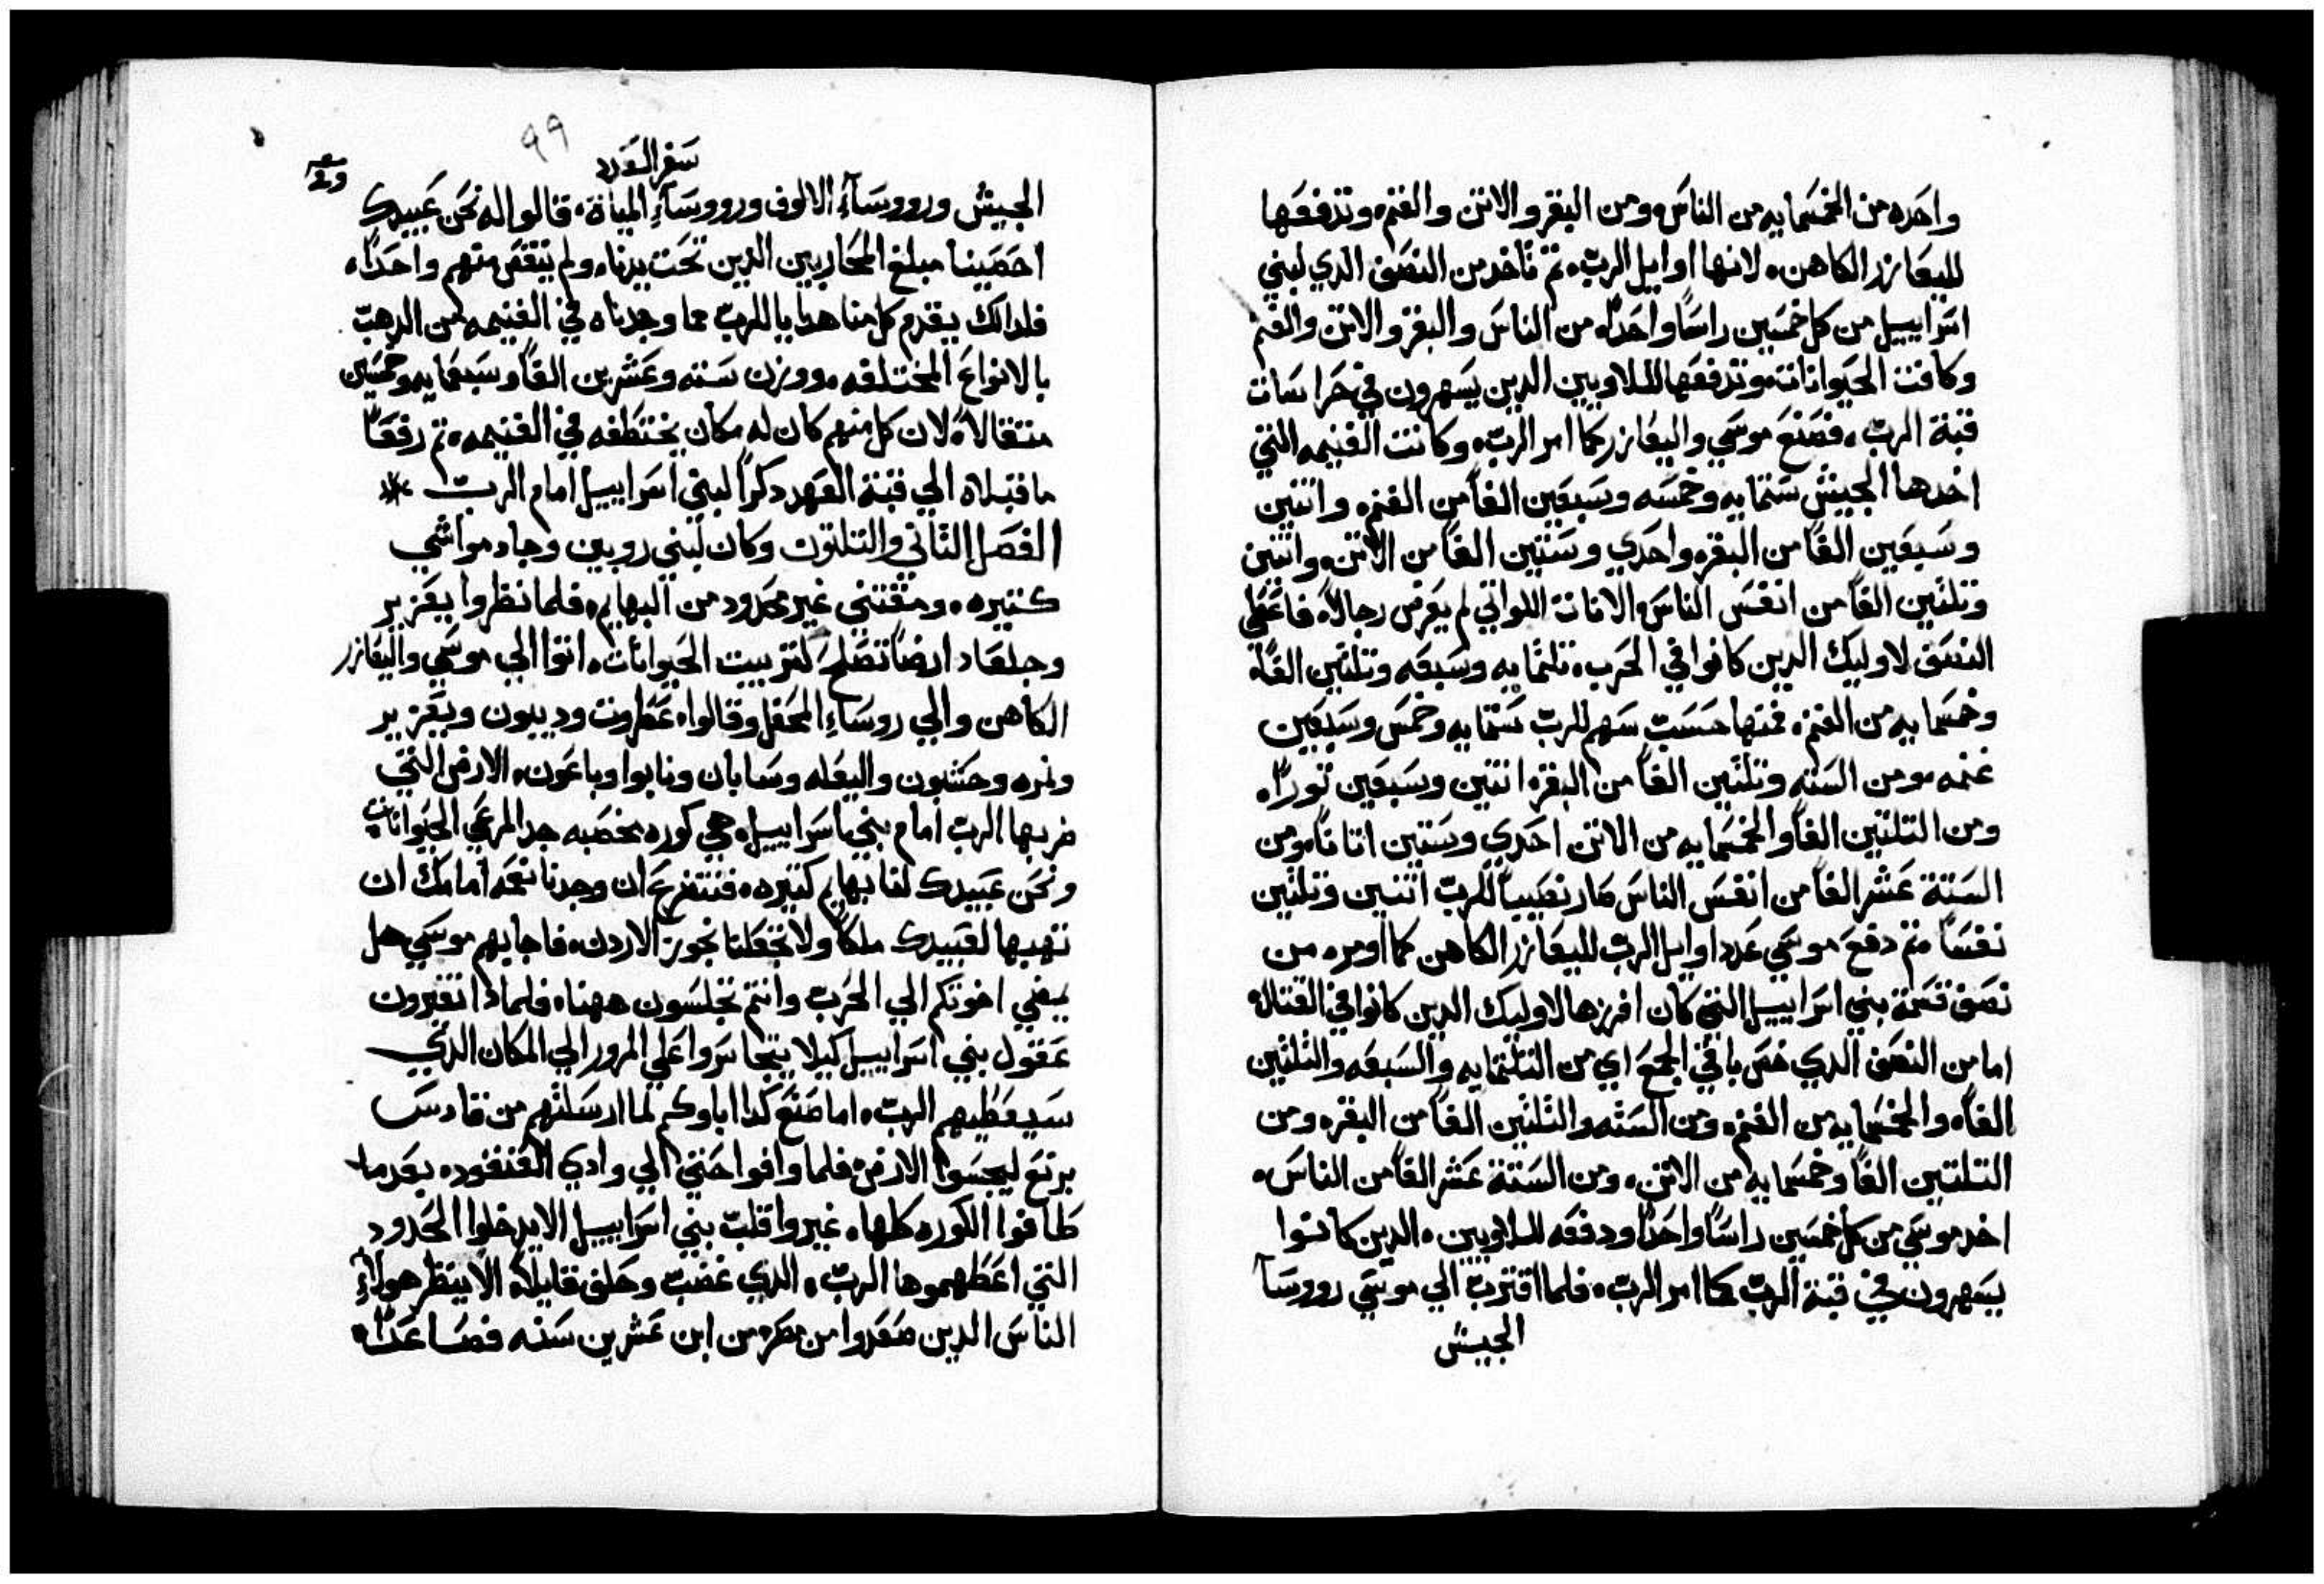 واحده من الخمسمايه من الناس ومن البقر والاتن والغنم وتدفعها
لليعازر الكاهن لانها اوايل الرب ثم تاخد من النصف الدي لبني
اسراييل من كل خمسين راسًا واحدًا من الناس والبقر والاتن والغنم
وكافت الحيوانات وتدفعها لللاويين الدين يسهرون في حراسات
قبة الرب فصنع موسي واليعازر كما امر الرب وكانت الغنيمه التي
اخدها الجيش ستمايه وخمسه وسبعين الفًا من الغنم واتنين
وسبعين الفًا من البقر واحدي وستين الفًا من الاتن واتنين
وتلتين الفًا من انفس الناس الانات اللواتي لم يعرفن رجالاً فاعطي
النصف لاوليك الدين كانوا في الحرب تلتمايه وسبعه وتلتين الفًا
وخمسمايه من الغنم فمنها حسب سهم للرب ستمايه وخمس وسبعين
غنمه ومن السته وتلتين الفًا من البقر اتنين وسبعين تورًا
ومن التلتين الفًا والخمسمايه من الاتن احدي وستين اتانًا ومن
الستة عشر الفًا من انفس الناس صار نصيبًا للرب اتنين وتلتين
نفسًا تم دفع موسي عدد اوايل الرب لليعازر الكاهن كما اومره من
نصف قسمة بني اسراييل التي كان افرزها لاوليك الدين كانوا في القتال
اما من النصف الدي خص باقي الجمع اي من التلتمايه والسبعه والتلتين
الفًا والخمسمايه من الغنم ومن السته والتلتين الفًا من البقر ومن
التلتين الفًا وخمسمايه من الاتن ومن الستة عشر الفًا من الناس
اخد موسي من كل خمسين راسًا واحدًا ودفعه لللاويين الدين كانوا
يسهرون في قبة الرب كما امر الرب فلما اقترب الي موسي رووسآ
الجيش
٩٩
سفر العدد
الجيش ورووسآء الالوف ورووسآء المياة قالوا له نحن عبيدك
احصينا مبلغ المحاربين الدين تحت يدنا ولم ينقص منهم واحدًا
فلدالك يقدم كل منا هدايا للرب مما وجدناه في الغنيمه من الدهب
بالانواع المختلفه ووزن سته وعشرين الفًا وسبعمايه وخمسين
متقالاً لان كل منهم كان له مكان يختطفه في الغنيمه تم رفعا
ما قبلاه الي قبة العهد دكرًا لبني اسراييل امام الرب
الفصل التاني والتلتون وكان لبني روبين وجاد مواشي
كتيره ومقتني غير محدود من البهايم فلما نظروا يعزير
وجلعاد ارضًا تصلح لتربيت الحيوانات اتوا الي موسي واليعازر
الكاهن والي روساء المحفل وقالوا عطروت وديبون ويعزير
ونمره وحشبون واليعله وسابان ونابوا وباعون الارض التي
ضربها الرب امام بني اسراييل هي كوره مخصبه جدا لمرعي الحيوانات
ونحن عبيدك لنا بهايم كتيره فنتضرع ان وجدنا نعمه امامك ان
تهبها لعبيدك ملكًا ولا تجعلنا نجوز الاردن فاجابهم موسي هل
يمضي اخوتكم الي الحرب وانتم تجلسون ههنا فلمادا تغيرون
عقول بني اسراييل كيلا يتجاسروا علي المرور الي المكان الدي
سيعطيهم الرب اما صنع كدا اباوكم لما ارسلتهم من قادس
برنع ليجسوا الارض فلما وافوا حتي الي وادي العنقود بعد ما
طافوا الكوره كلها غيروا قلب بني اسراييل الا يدخلوا الحدود
التي اعطهموها الرب الدي غضب وحلف قايلاً الا ينظر هولاء
الناس الدين صعدوا من مصر من ابن عشرين سنه فصاعدًا